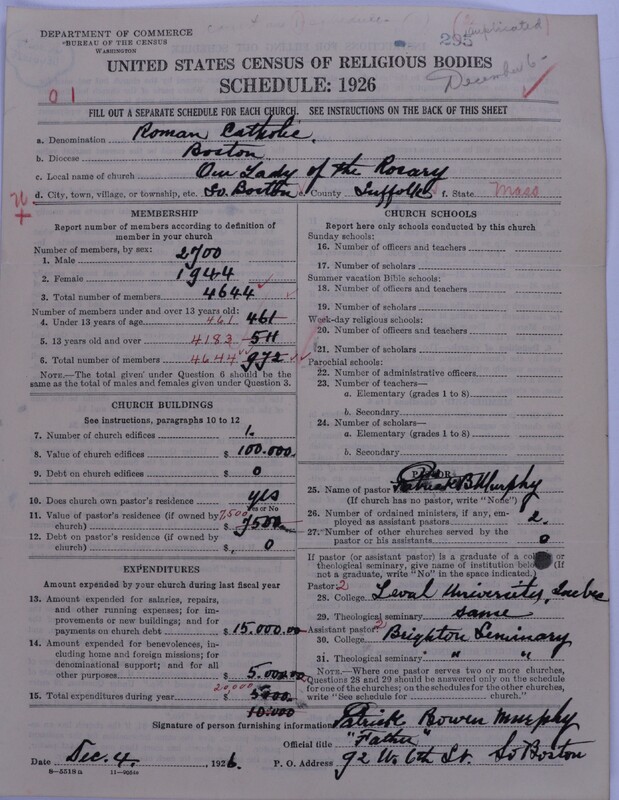 DEPARTMENT OF COMMERCE
BUREAU OF THE CENSUS
WASHINGTON
295
(duplicated)
December 6-
UNITED STATES CENSUS OF RELIGIOUS BODIES
SCHEDULE: 1926
01
FILL OUT A SEPARATE SCHEDULE FOR EACH CHURCH. SEE INSTRUCTIONS ON THE BACK OF THIS SHEET
a. Denomination Roman Catholic.
b. Diocese Boston
c. Local name of church Our Lady of the Rosary
d. City, town, village, or township, etc. So. Boston e. County Suffolk f. State Mass
MEMBERSHIP
Report number of members according to definition of
member in your church
Number of members, by sex:
1. Male 2700
2. Female 1944
3. Total number of members 4644
Number of members under and over 13 years old:
4. Under 13 years of age 461 461
5. 13 years old and over 4183 511
6. Total number of members 4644 972
NOTE.—The total given under Question 6 should be the
same as the total of males and females given under Question 3.
CHURCH BUILDINGS
See instructions, paragraphs 10 to 12
7. Number of church edifices 1.
8. Value of church edifices $ 100.000.
9. Debt on church edifices $ 0
10. Does church own pastor's residence yes
Yes or No
11. Value of pastor's residence (if owned by
church) $ 7,500 7500
12. Debt on pastor's residence (if owned by
church) $ 0
EXPENDITURES
Amount expended by your church during last fiscal year
13. Amount expended for salaries, repairs,
and other running expenses; for im-
provements or new buildings; and for
payments on church debt $ 15.000.00
14. Amount expended for benevolences,
including home and foreign missions; for
denominational support; and for all
other purposes $ 5.000.00
15. Total expenditures during year $ 20,000
10.000
CHURCH SCHOOLS
Report here only schools conducted by this church
Sunday schools:
16. Number of officers and teachers
17. Number of scholars
Summer vacation Bible schools:
18. Number of officers and teachers
19. Number of scholars
Week-day religious schools:
20. Number of officers and teachers
21. Number of scholars
Parochial schools:
22. Number of administrative officers
23. Number of teachers—
a. Elementary (grades 1 to 8)
b. Secondary
24. Number of scholars—
a. Elementary (grades 1 to 8)
b. Secondary
PASTOR
25. Name of pastor Patrick B Murphy
(If church has no pastor, write "None")
26. Number of ordained ministers, if any, em-
ployed as assistant pastors 2.
27. Number of other churches served by the
pastor or his assistants 0
If pastor (or assistant pastor) is a graduate of a or
theological seminary, give name of institution below (If
not a graduate, write "No" in the space indicated.)
Pastor: 2
28. College Leval University, Quebec
29. Theological seminary same
Assistant pastor: 2
30. College Brighton Seminary
31. Theological seminary " "
NOTE.—Where one pastor serves two or more churches,
Questions 28 and 29 should be answered only on the schedule
for one of the churches; on the schedules for the other churches,
write "See schedule for church."
Signature of person furnishing information Patrick Bowen Murphy
Official title "Father"
Date Dec. 4. , 1926. P. O. Address 92 W. 6th St. So Boston
8—5518a 11—9034c